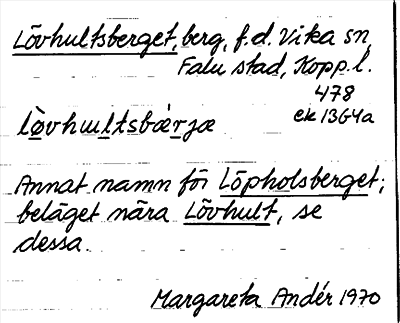 Lövhultsberget, berg, f.d. Vika sn,
Falu stad, Kopp.l.
478
ek 13G4a
lø̀vhuultsbær̀jæ
Annat namn för Löpholsberget;
beläget nära Lövhult, se
dessa.
Margareta Andér 1970